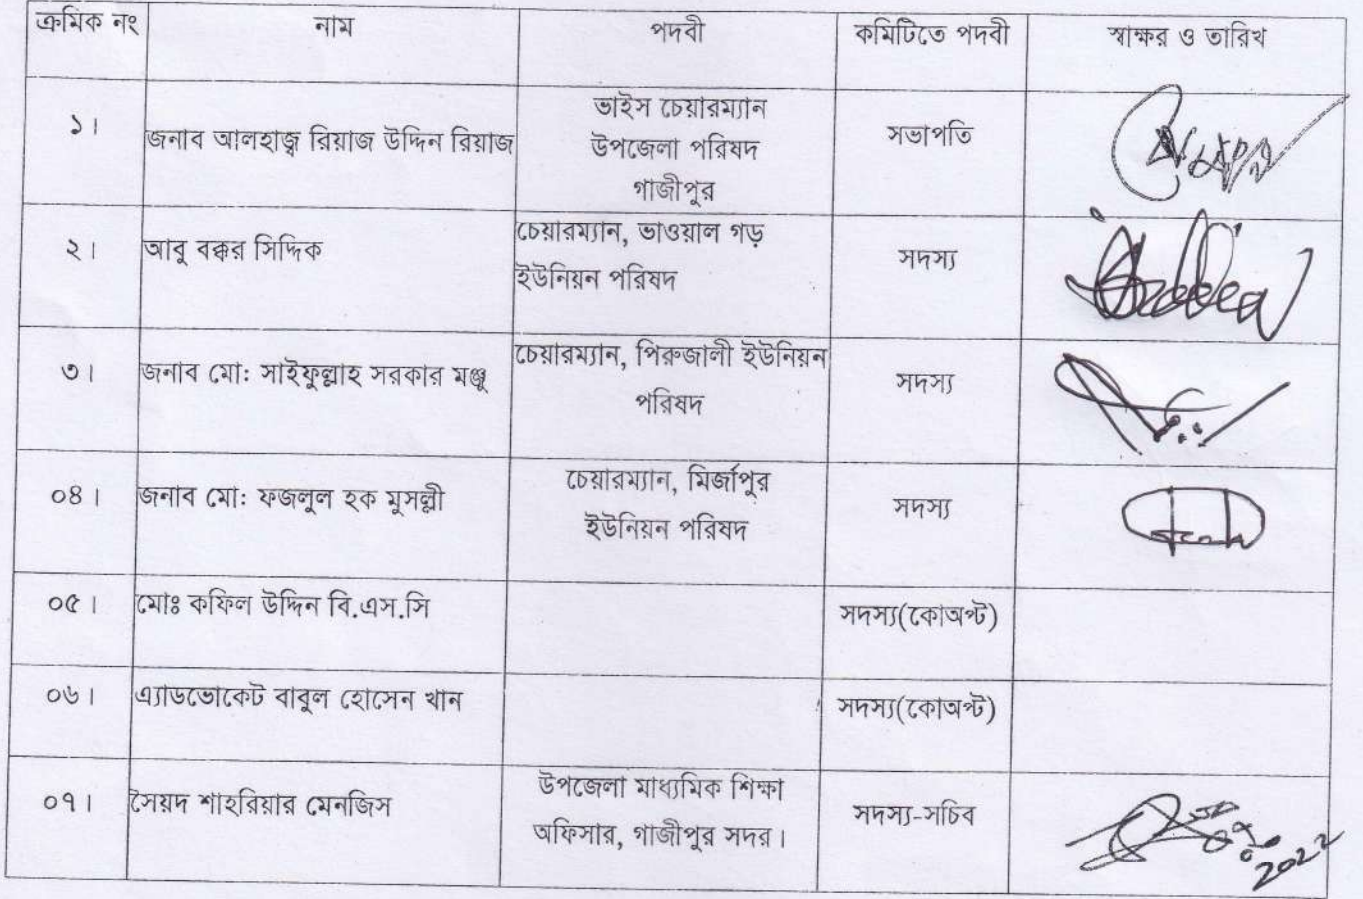 ক্রমিক নং নাম পদবী কমিটিতে পদবী স্বাক্ষর ও তারিখ
১। জনাব আলহাজ্ব রিয়াজ উদ্দিন রিয়াজ ভাইস চেয়ারম্যান সভাপতি
উপজেলা পরিষদ
গাজীপুর
২। আবু বক্কর সিদ্দিক চেয়ারম্যান, ভাওয়াল গড় সদস্য
ইউনিয়ন পরিষদ
৩। জনাব মো: সাইফুল্লাহ সরকার মঞ্জু চেয়ারম্যান, পিরুজালী ইউনিয়ন সদস্য
পরিষদ
০৪। জনাব মো: ফজলুল হক মুসল্লী চেয়ারম্যান, মির্জাপুর সদস্য
ইউনিয়ন পরিষদ
০৫। মোঃ কফিল উদ্দিন বি.এস.সি সদস্য(কোঅপ্ট)
০৬। এ্যাডভোকেট বাবুল হোসেন খান সদস্য(কোঅপ্ট)
০৭। সৈয়দ শাহরিয়ার মেনজিস উপজেলা মাধ্যমিক শিক্ষা সদস্য-সচিব
অফিসার, গাজীপুর সদর। 2022